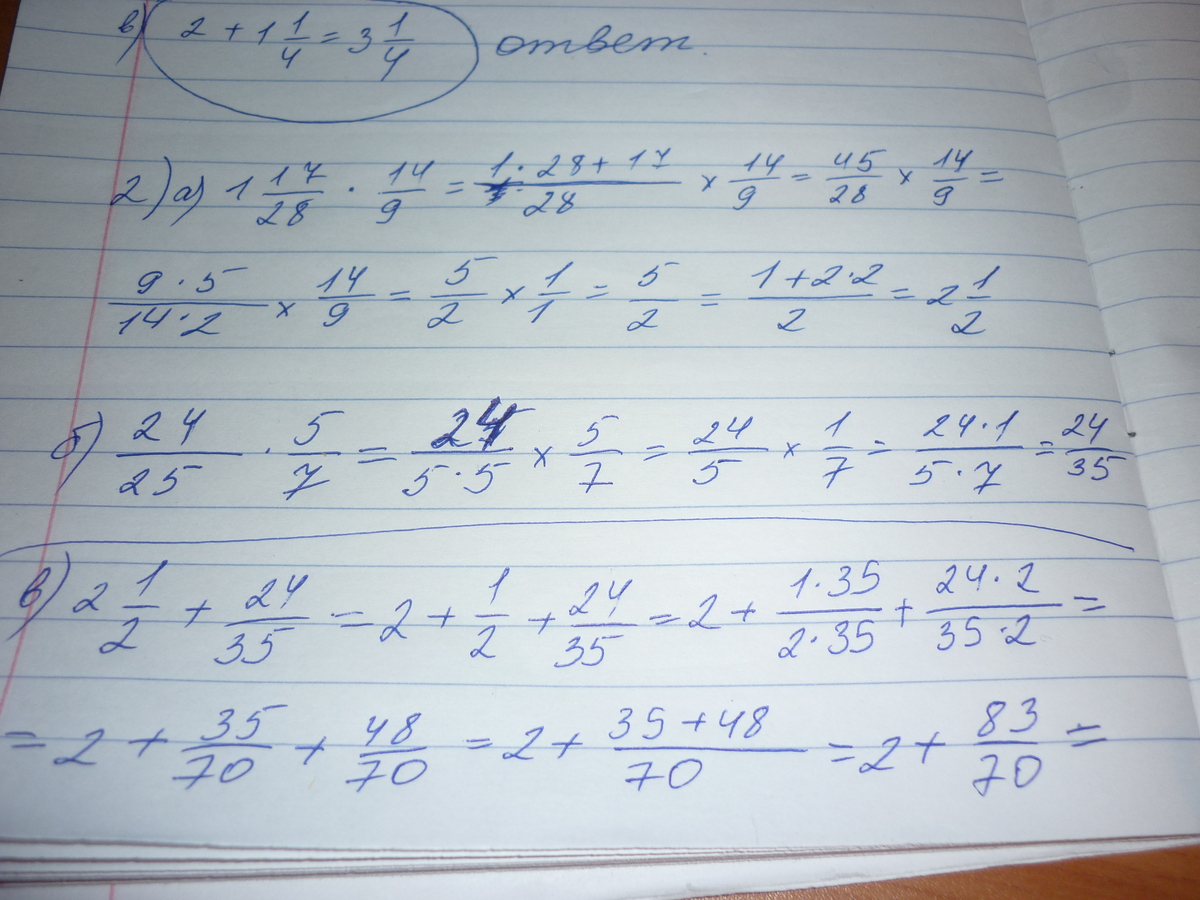 в) 2 + 1 1/4 = 3 1/4 ответ.
2) а) 1 17/28 · 14/9 = (1 · 28 + 17)/28 × 14/9 = 45/28 × 14/9 =
(9 · 5)/(14 · 2) × 14/9 = 5/2 × 1/1 = 5/2 = (1 + 2 · 2)/2 = 2 1/2
б) 24/25 · 5/7 = 24/(5 · 5) × 5/7 = 24/5 × 1/7 = (24 · 1)/(5 · 7) = 24/35
в) 2 1/2 + 24/35 = 2 + 1/2 + 24/35 = 2 + (1 · 35)/(2 · 35) + (24 · 2)/(35 · 2) =
= 2 + 35/70 + 48/70 = 2 + (35 + 48)/70 = 2 + 83/70 =